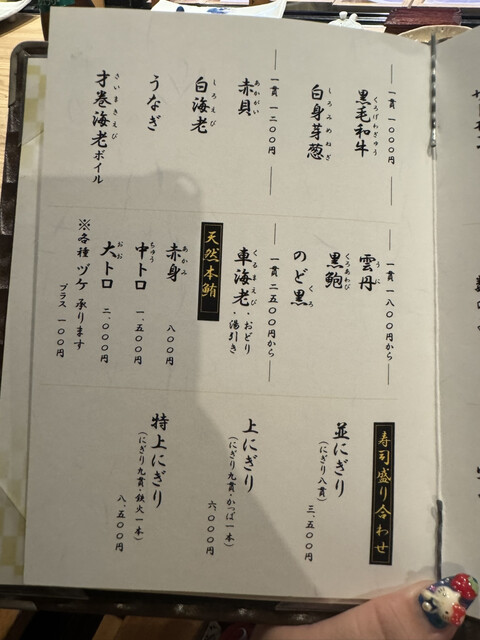 一貫 一〇〇〇円
黒毛和牛
くろげわぎゅう
白身芽葱
しろみめねぎ
一貫 一二〇〇円
赤貝
あかがい
白海老
しろえび
うなぎ
才巻海老ボイル
さいまきえび
一貫 一八〇〇円から
雲丹
うに
黒鮑
くろあわび
のど黒
くろ
一貫 二五〇〇円から
車海老・おどり・湯引き
くるまえび
天然本鮪
赤身 八〇〇円
あかみ
中トロ 一、五〇〇円
ちゅう
大トロ 二、〇〇〇円
おお
※各種 ヅケ 承ります
プラス 一〇〇円
寿司盛り合わせ
並にぎり
(にぎり八貫) 三、五〇〇円
上にぎり
(にぎり九貫・かっぱ一本) 六、〇〇〇円
特上にぎり
(にぎり九貫 鉄火一本) 八、五〇〇円